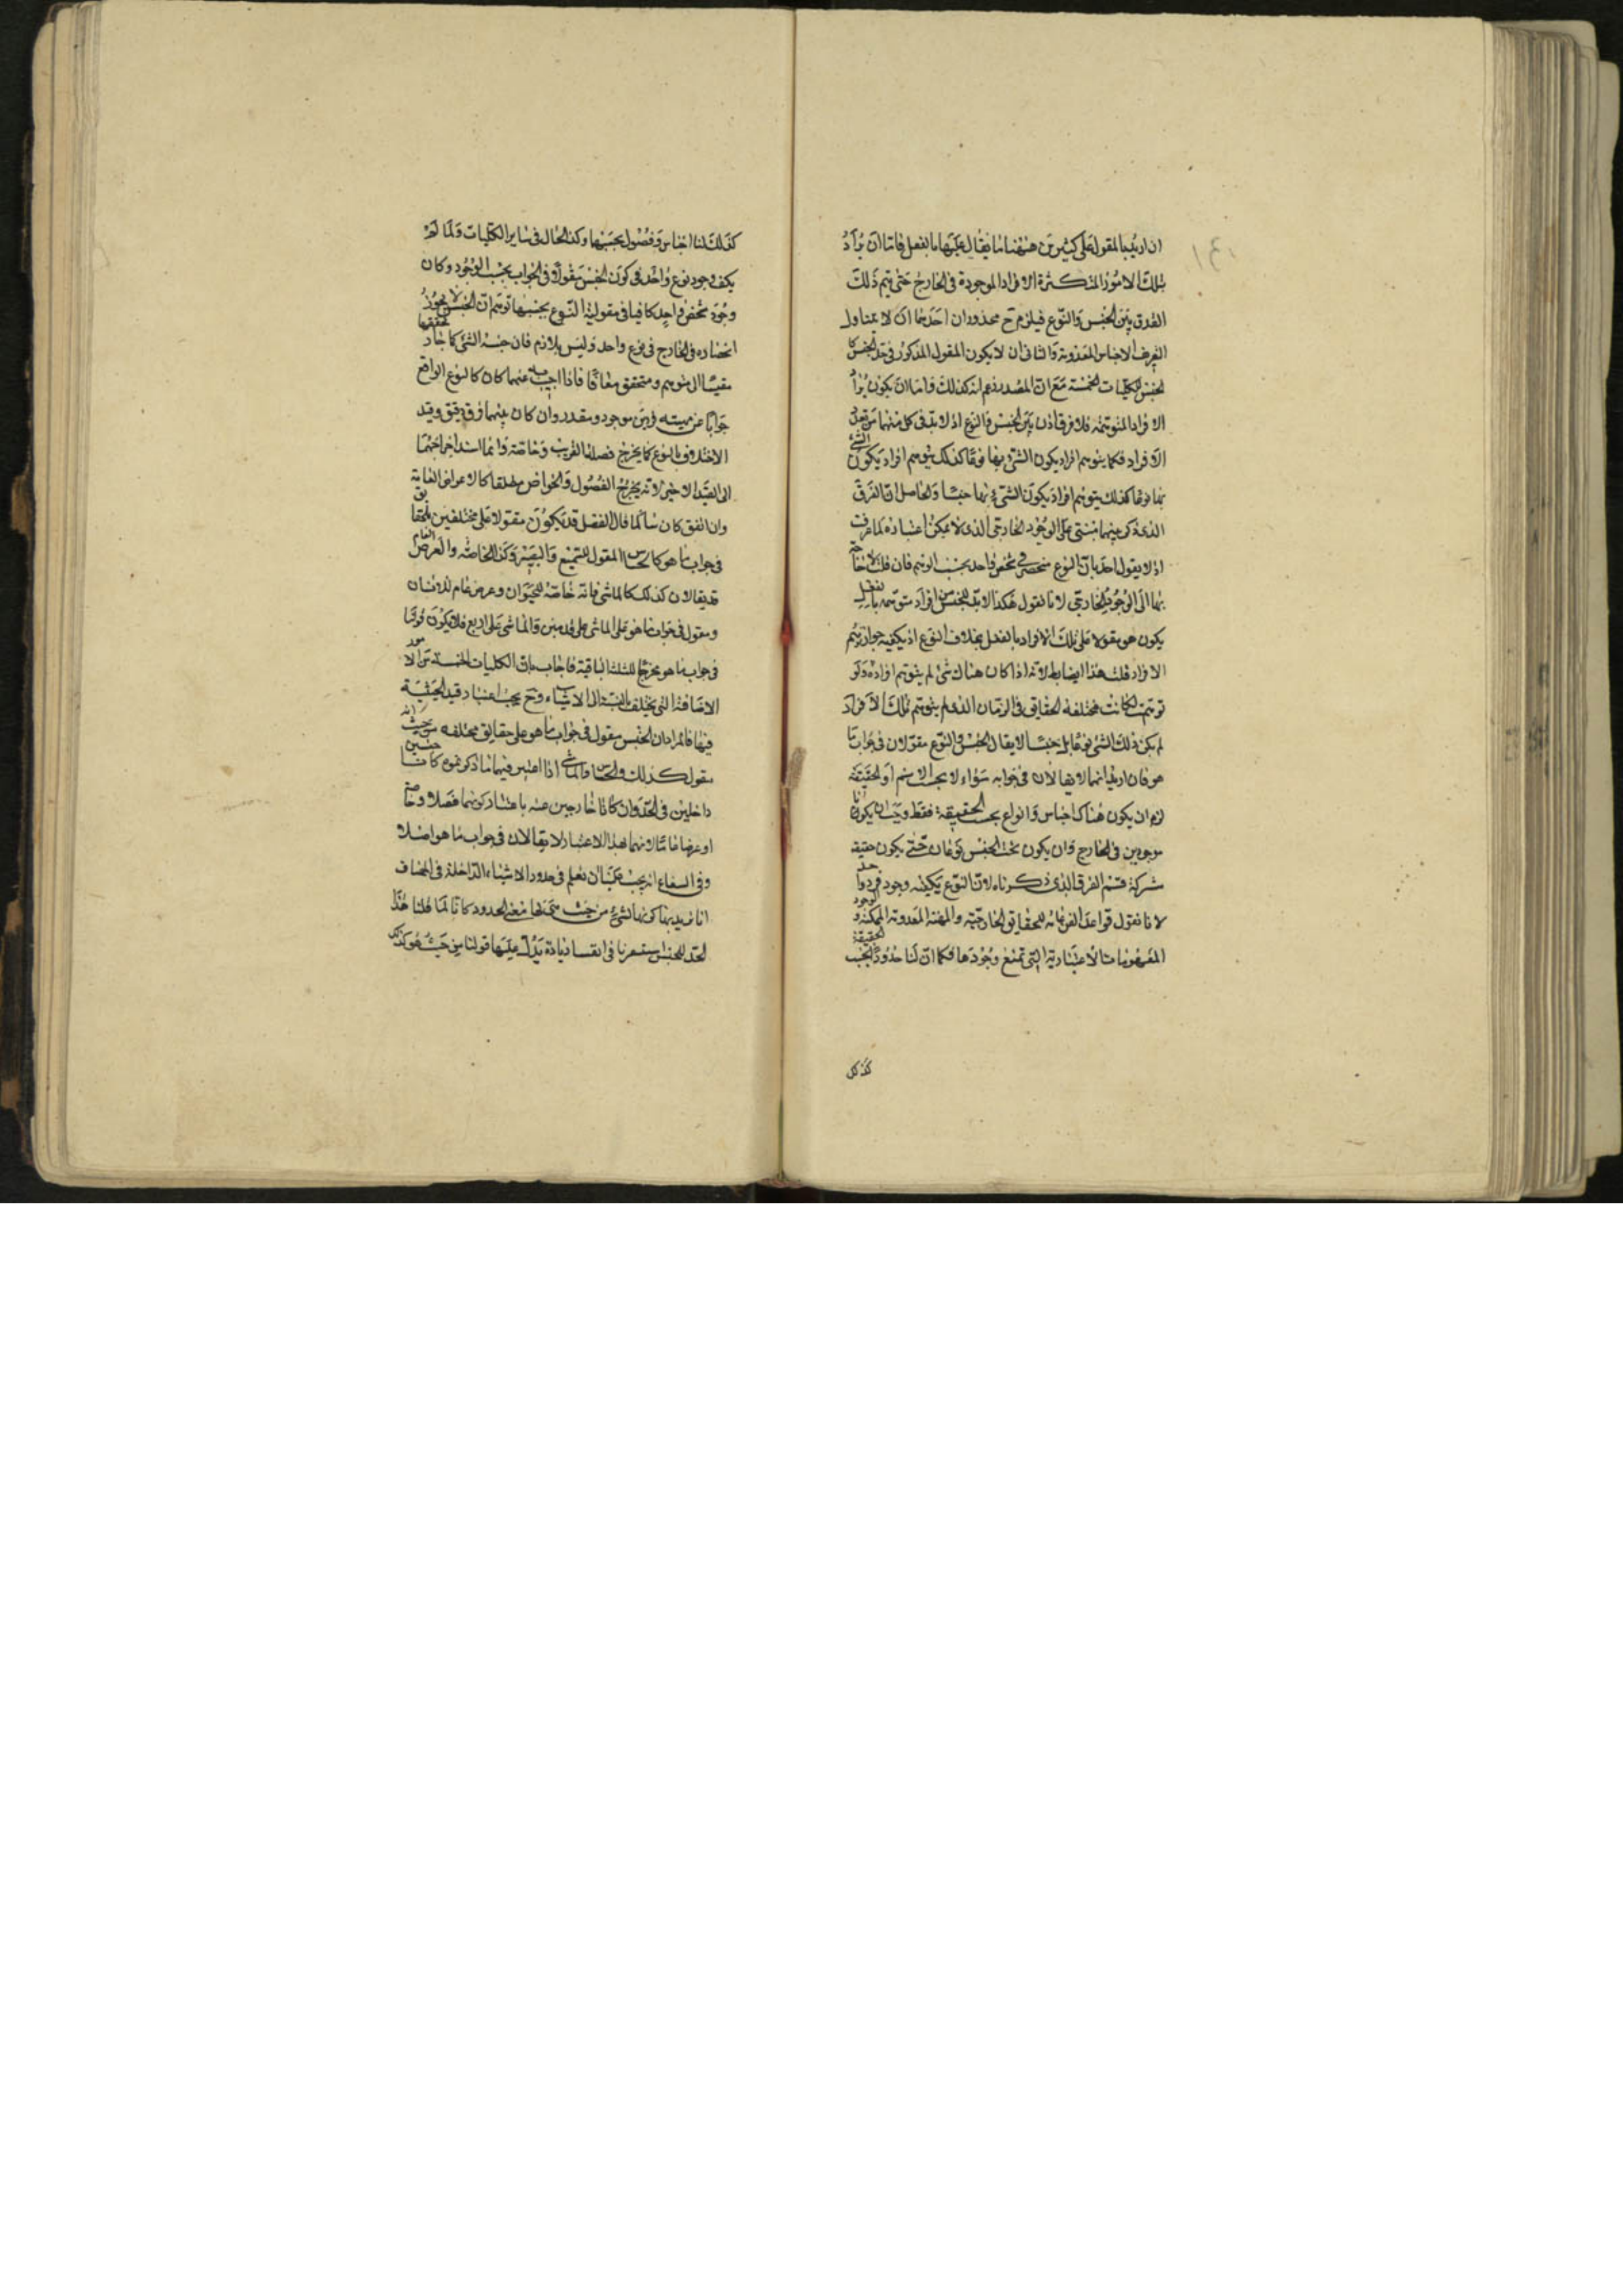 ان اريد بالمقول على كثيرين ههنا ما يقال عليها بالفعل فاما ان يراد
بتلك الامور المتكثرة الافراد الموجودة فى الخارج حتى يتم ذلك
الفرق بين الجنس والنوع فيلزم ح محذوران احدهما ان لا يتناول
التعريف الاجناس المعدومة والثانى ان لا يكون المقول المذكور فى حد الجنس كا
لجنس للكليات الخمسة مع ان المصدر زعم انه كذلك واما ان يكون يراد
الافراد المتوهمة فلا فرق اذن بين الجنس والنوع اذ لا بد فى كل منهما من تعدد
الافراد فكما يتوهم افراد يكون الشئ بها نوعا كذلك يتوهم افراد يكون الشئ
بها نوعا كذلك يتوهم افراد يكون الشئ بها جنسا والحاصل ان الفرق
الذى ذكر بينهما مبتنى على الوجود الخارجى الذى لا يمكن اعتباره لما عرفت
اذ لا يقول احد بان النوع منحصر فى شخص واحد بحسب التوهم فان قلت لا حاجة
بنا الى الوجود الخارجى لانا نقول هكذا لا بد للجنس من افراد متوهمة بالفعل
يكون هو مقولا على تلك الافراد بالفعل بخلاف النوع اذ يكفيه جواز توهم
الافراد قلت هذا ايضا باطل لانه اذا كان هناك شئ لم يتوهم افراده ولو
توهمت لكانت مختلفة الحقايق فى الزمان الذى لم يتوهم تلك الافراد
لم يكن ذلك الشئ نوعا بل جنسا لا يقال الجنس والنوع مقولان فى جواب ما
هو فان اريد انهما لا يقالان فى جوابه سواء لا بحسب الاسم او الحقيقة
لزم ان يكون هناك اجناس وانواع بحسب الحقيقة فقط ويجب ان يكونا
موجودين فى الخارج وان يكون تحت الجنس نوعان حتى يكون حقيقة
شركة فتم الفرق الذى ذكرناه لان النوع يكفيه وجود فرد واحد
لانا نقول قواعد الفن عامة للحقايق الخارجية والمهية المعدومة الممكنة الوجود و
المفهومات الاعتبارية التى تمنع وجودها فكما ان لنا حدودا بحسب الحقيقة
كذلك
كذلك لنا اجناس وفصول بحسبها وكذا الحال فى ساير الكليات ولما لم
يكف وجود نوع واحد فى كون الجنس مقولا فى الجواب بحسب الوجود وكان
وجود شخص واحد كافيا فى مقولية النوع بحسبها توهم ان الجنس لا يجوز
انحصاره فى الخارج فى نوع واحد وليس بلازم فان جنسه الشئ كما جاز تحققها
مقيسا الى متوهم ومتحقق معا فاذا اجيب به عنهما كان كالنوع الواقع
جوابا عن مهيته فرد من موجود ومقدر وان كان بينهما فرق دقيق وقيد
الاختلاف بالنوع كما يخرج فصلنا القريب وخاصة وانما اسند اخراجهما
الى القيد الاخير لانه يخرج الفصول والخواص مطلقا كالاعراض العامة
وان اتفق كان سائلا قال الفصل قد يكون مقولا على مختلفين بالحقايق
فى جواب ما هو كالحساس المقول للسميع والبصير وكذا الخاصة والعرض العام
قد يقالان كذلك كالماشى فانه خاصة للحيوان وعرض عام للانسان
ومقول فى جواب ما هو على الماشى على قدمين والماشى على اربع فلا يكون قولنا
فى جواب ما هو مخرجا للثلثة الباقية فاجاب بان الكليات الخمسة من الامور
الاضافية التى يختلف بالنسبة الى الاشياء وح يجب اعتبار قيد الحيثية
فيها فالمراد ان الجنس مقول فى جواب ما هو على حقايق مختلفة من حيث انه
مقول كذلك والحساس والماشى اذا اعتبر فيهما ما ذكرتموه كانا جنسين
داخلين فى الحد وان كانا خارجين عنه باعتبار كونهما فصلا وخاصة
او عرضا عاما لانهما بهذا الاعتبار لا يقالان فى جواب ما هو اصلا
وفى الشفاء انه يجب علينا ان نعلم فى حدود الاشياء الداخلة فى المضاف
انا نريد بها كونها لشئ من حيث معناها معنى الحدود كانا لما قلنا هذا
الحد للجنس استشعرنا فى انفسنا زيادة يدل عليها قولنا من حيث هو كذلك